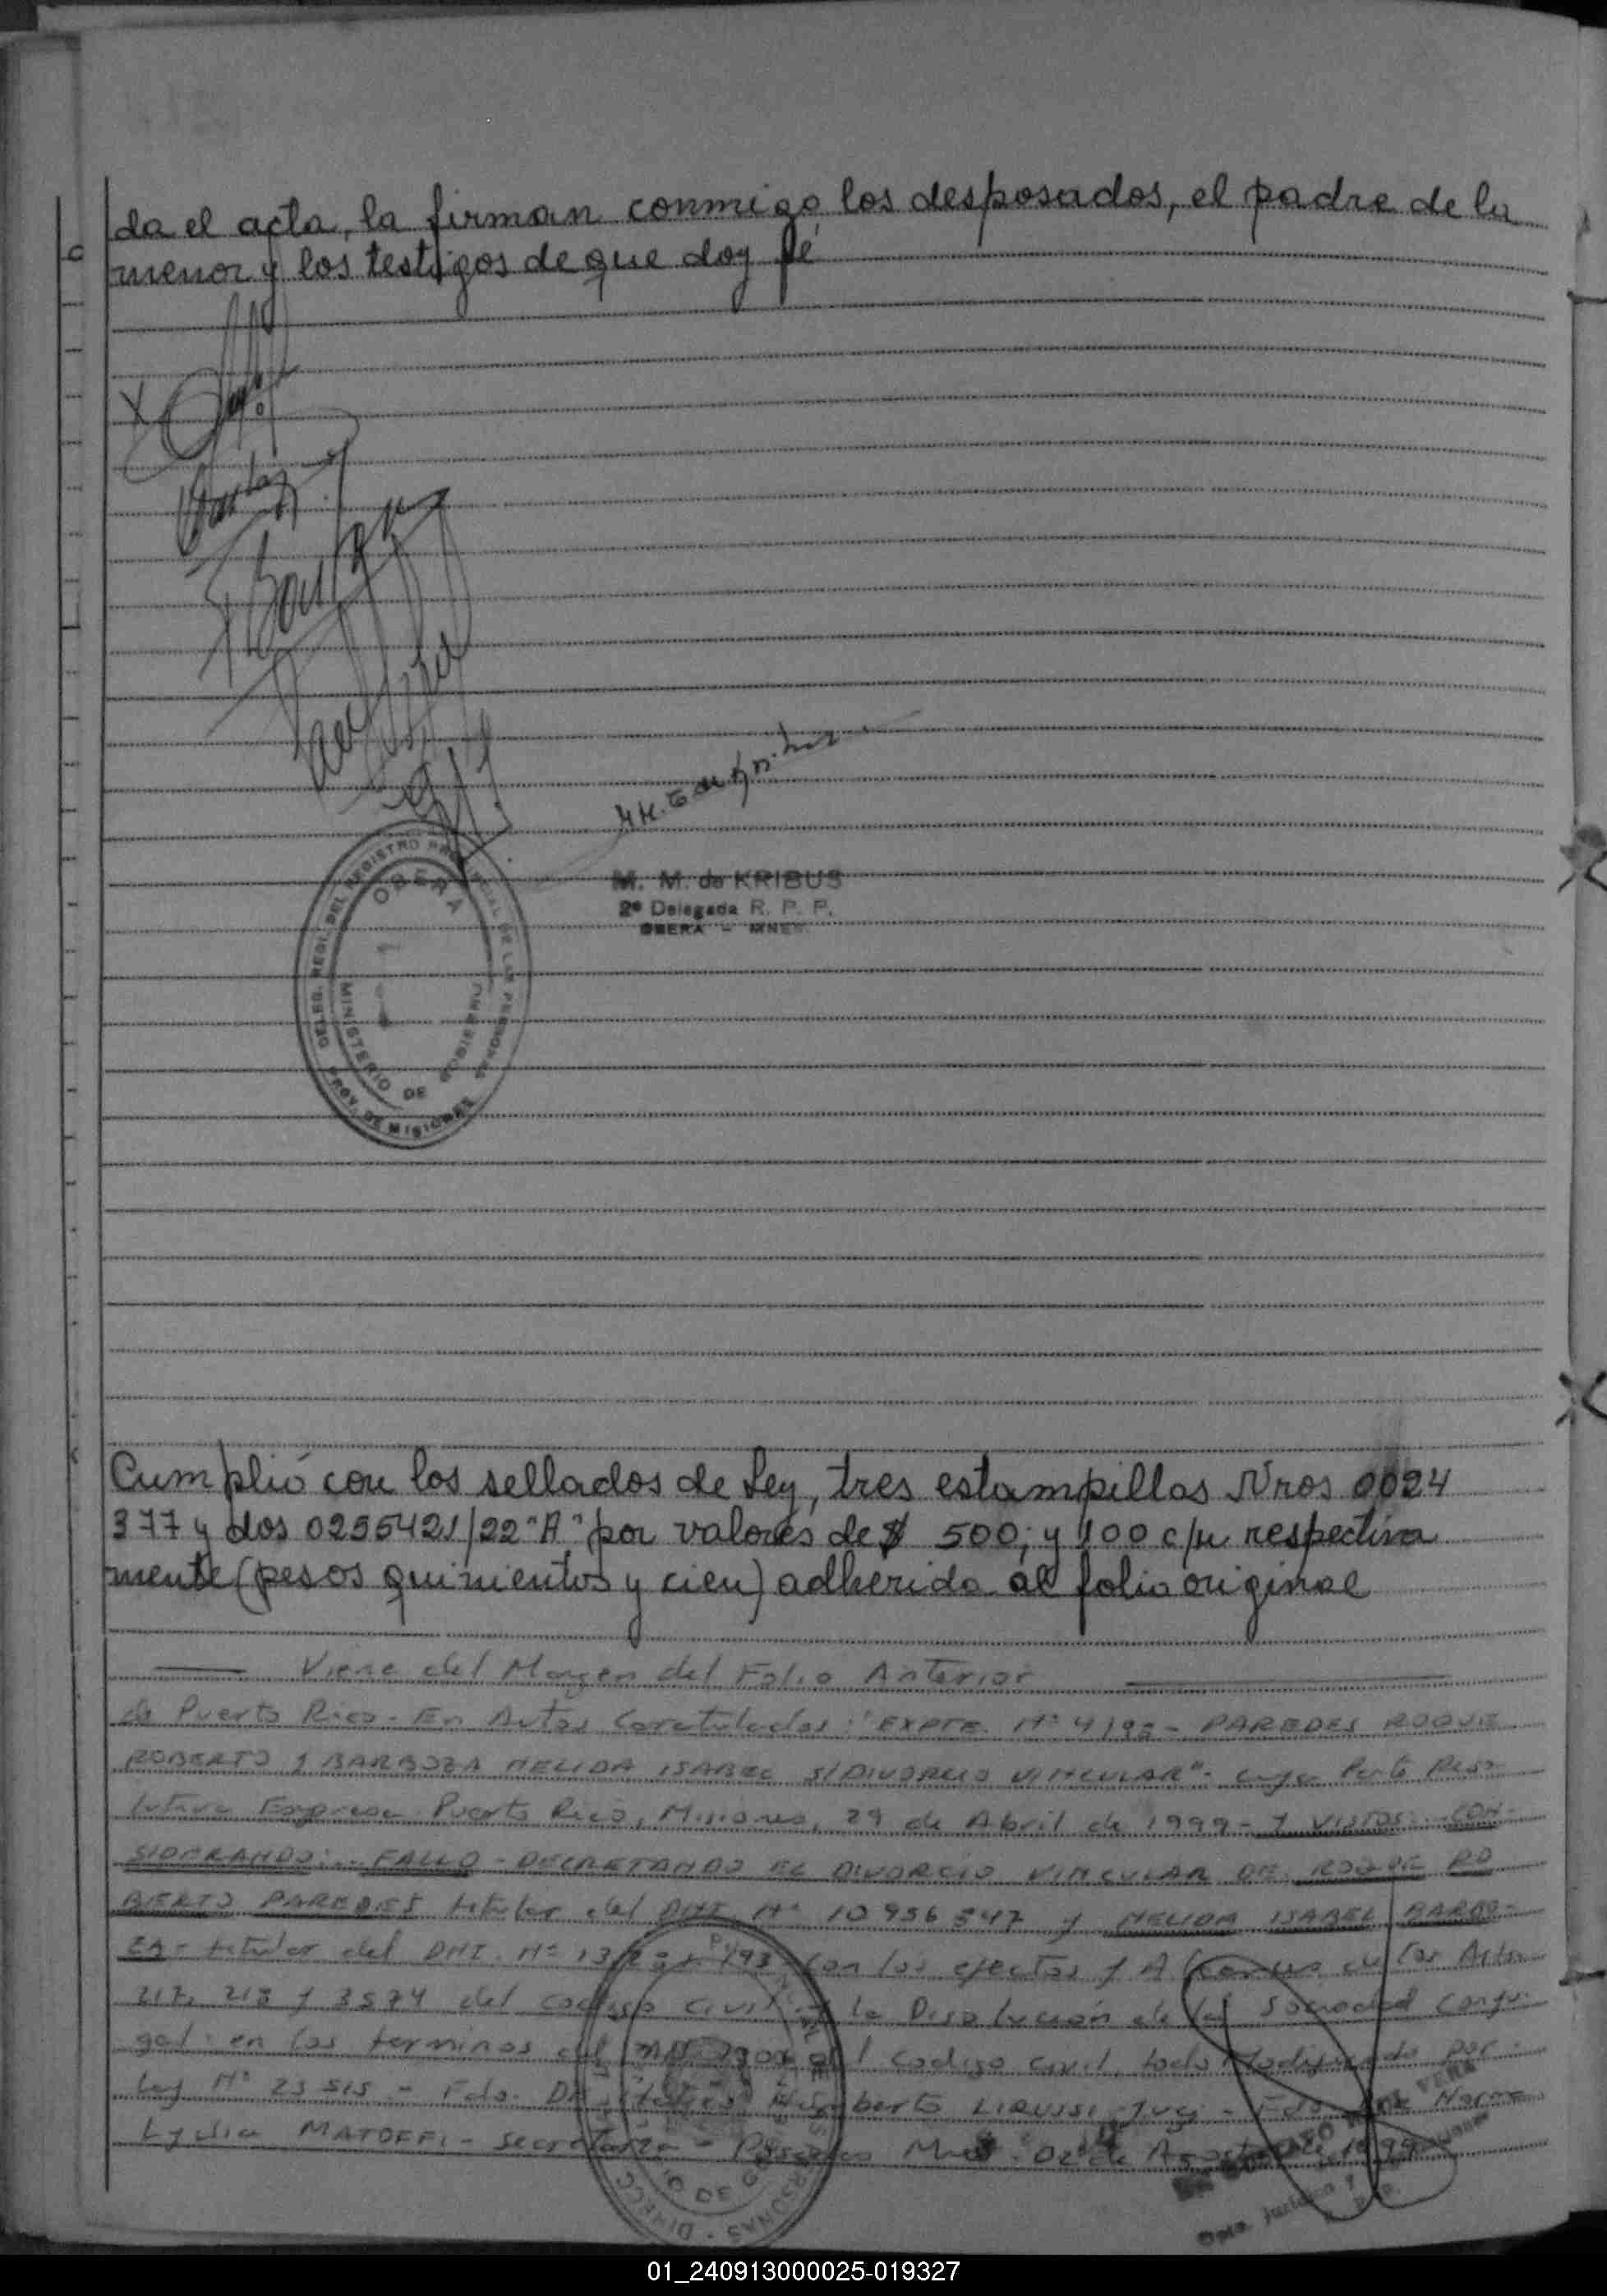 da el acta, la firman conmigo los desposados, el padre de la
menor y los testigos de que doy fé
M. M. de KRIBUS
2ª Delegada R. P. P.
OBERA - MNES
OBERA
MINISTERIO DE GOBIERNO
PROV. DE MISIONES
Cumplió con los sellados de Ley, tres estampillas Nros 0024
377 y dos 0255421/22 "A" por valores de $ 500; y 100 c/u respectiva
mente (pesos quinientos y cien) adherido al folio original
Viene del Margen del Folio Anterior
de Puerto Rico - En Autos Caratulados: "EXPTE. Nº 4/98 - PAREDES ROQUE
ROBERTO y BARBOZA NELIDA ISABEL S/DIVORCIO VINCULAR" - cuya Parte Reso
lutiva Expresa: Puerto Rico, Misiones, 29 de Abril de 1999 - Y VISTOS: CON-
SIDERANDO: FALLO - DECRETANDO EL DIVORCIO VINCULAR DE ROQUE RO
BERTO PAREDES titular del DNI Nº 10 956 547 y NELIDA ISABEL BARBO-
ZA - titular del DNI. Nº con los efectos y de los Arts.
217, 218 y 3574 del codigo civil y la Disolución de la Sociedad Conyu-
gal en los terminos del codigo civil, todo Modificado por
Ley Nº 23 515 - Fdo. Humberto Juez - Norma
Lydia MATOFFI - secretaria - Posadas Mnes. 02 de Agosto de 1999
01_240913000025-019327